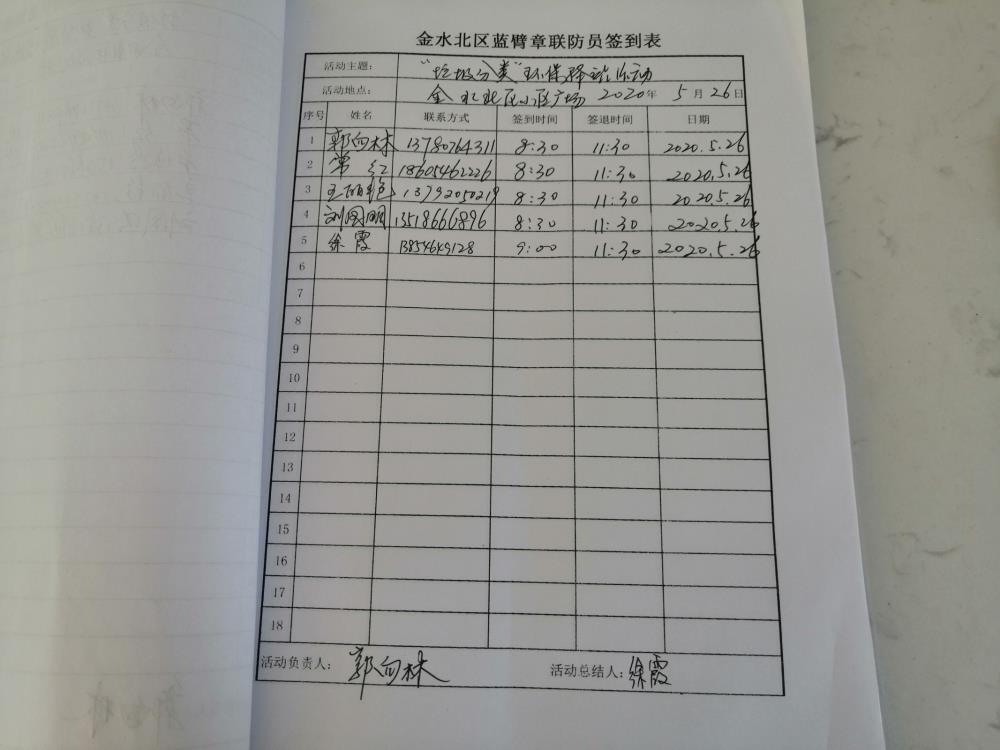 金水北区蓝臂章联防员签到表
活动主题： "垃圾分类"环保 活动
活动地点： 金水北区小区广场 2020年 5月26日
序号 姓名 联系方式 签到时间 签退时间 日期
1 郭向林 13780764311 8:30 11:30 2020.5.26
2 常红 18605462226 8:30 11:30 2020.5.26
3 王丽艳 13792050219 8:30 11:30 2020.5.26
4 刘国明 13518666896 8:30 11:30 2020.5.26
5 徐霞 13854649128 9:00 11:30 2020.5.26
6
7
8
9
10
11
12
13
14
15
16
17
18
活动负责人： 郭向林 活动总结人：徐霞